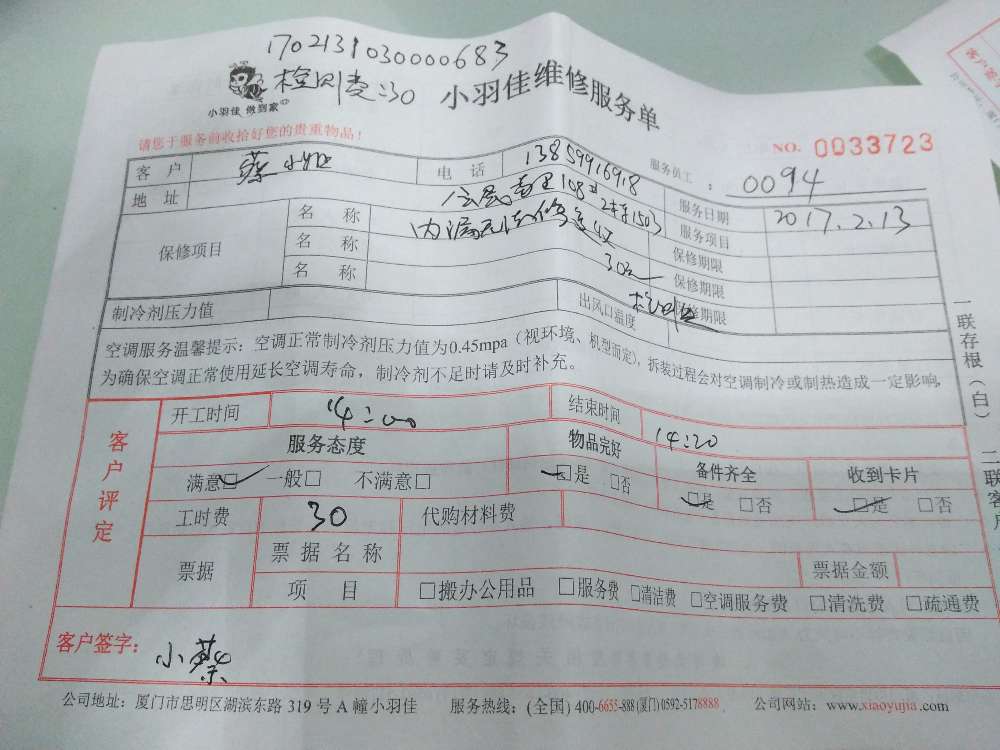 1702131030000683
检测费:30
小羽佳 做到家
小羽佳维修服务单
请您于服务前收拾好您的贵重物品！
NO. 0033723
客 户 蔡小姐 电 话 13859916918 服务员工： 0094
地 址 108 1503 服务日期 2017.2.13
保修项目 名 称 内漏 服务项目
名 称 30 保修期限
名 称 保修期限
保修期限
制冷剂压力值 出风口温度
空调服务温馨提示：空调正常制冷剂压力值为0.45mpa（视环境、机型而定），拆装过程会对空调制冷或制热造成一定影响，
为确保空调正常使用延长空调寿命，制冷剂不足时请及时补充。
一联存根（白）
二联客户
客户评定
开工时间 14:00 结束时间 14:20
服务态度 物品完好 备件齐全 收到卡片
满意□ 一般□ 不满意□ □是 □否 □是 □否 □是 □否
工时费 30 代购材料费
票据 票据名称 票据金额
项 目 □搬办公用品 □服务费 □清洁费 □空调服务费 □清洗费 □疏通费
客户签字： 小蔡
公司地址：厦门市思明区湖滨东路 319 号 A 幢小羽佳 服务热线：(全国) 400-6655-888 (厦门) 0592-5178888 公司网站：www.xiaoyujia.com